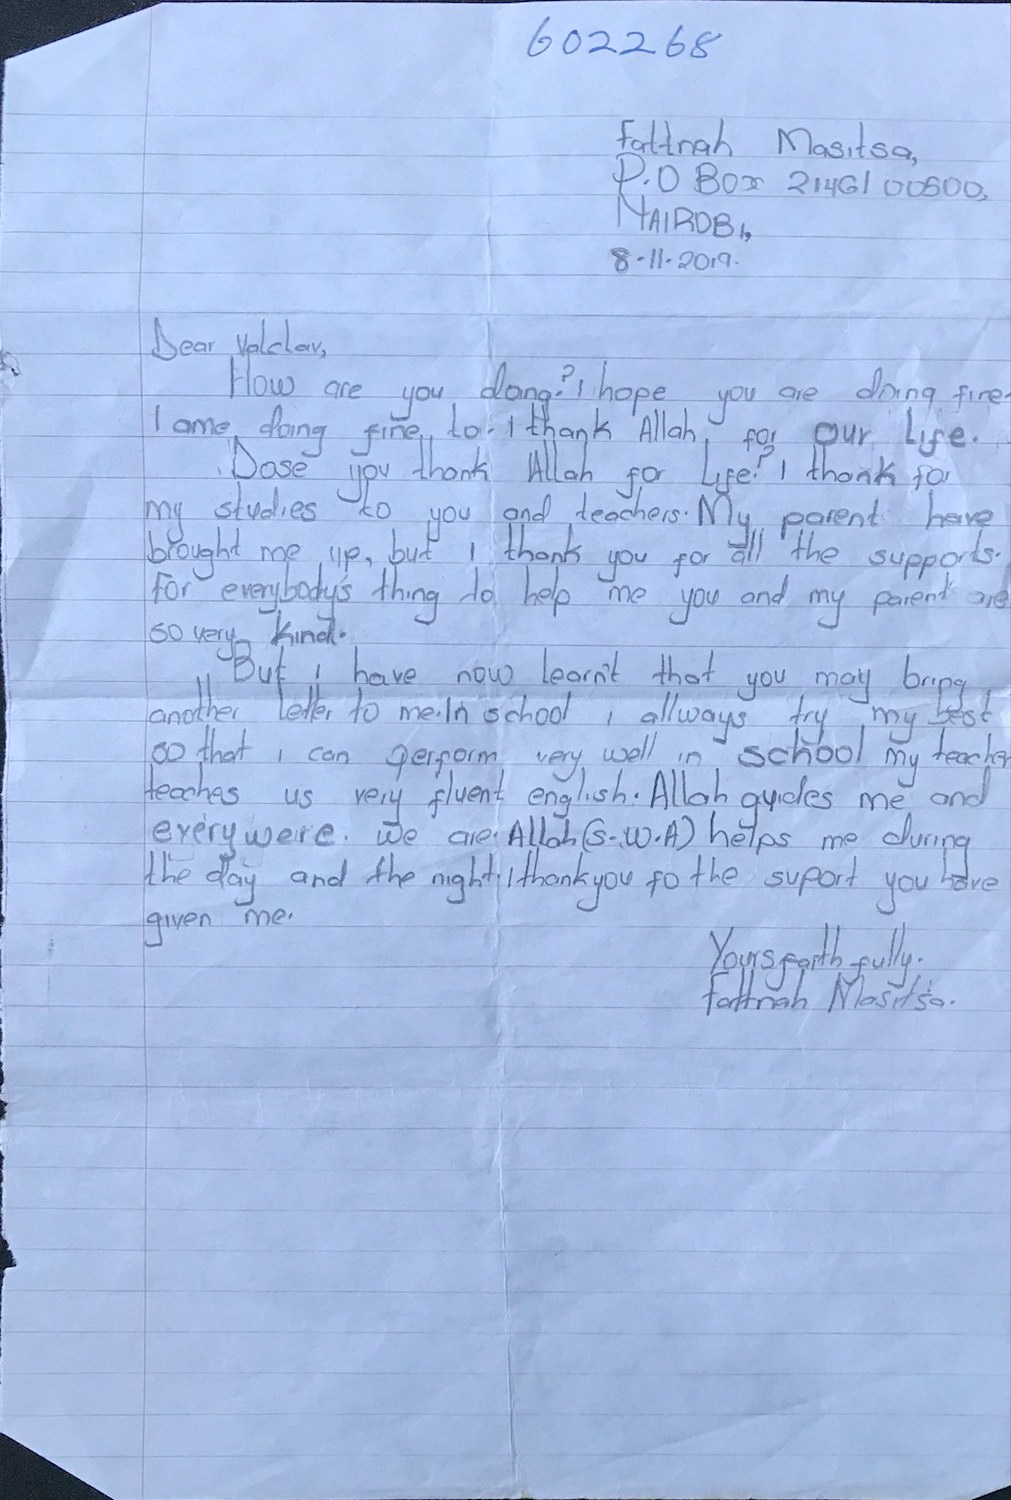 602268
Fattnah Masitsa,
P.O Box 21461 00500,
NAIROBI,
8-11-2019.
Dear Valclav,
How are you doing? I hope you are doing fine.
I ame doing fine to. I thank Allah for our Life.
Dose you thank Allah for Life? I thank for
my studies to you and teachers. My parent have
brought me up, but I thank you for all the supports.
For everybody's thing to help me you and my parent are
so very kind.
But i have now learn't that you may bring
another letter to me. In school i allways try my best
so that i can perform very well in school my teacher
teaches us very fluent english. Allah guides me and
every were. we are. Allah (S.W.A) helps me during
the day and the night, I thank you fo the suport you have
given me.
Yours faith fully.
Fattnah Masitsa.